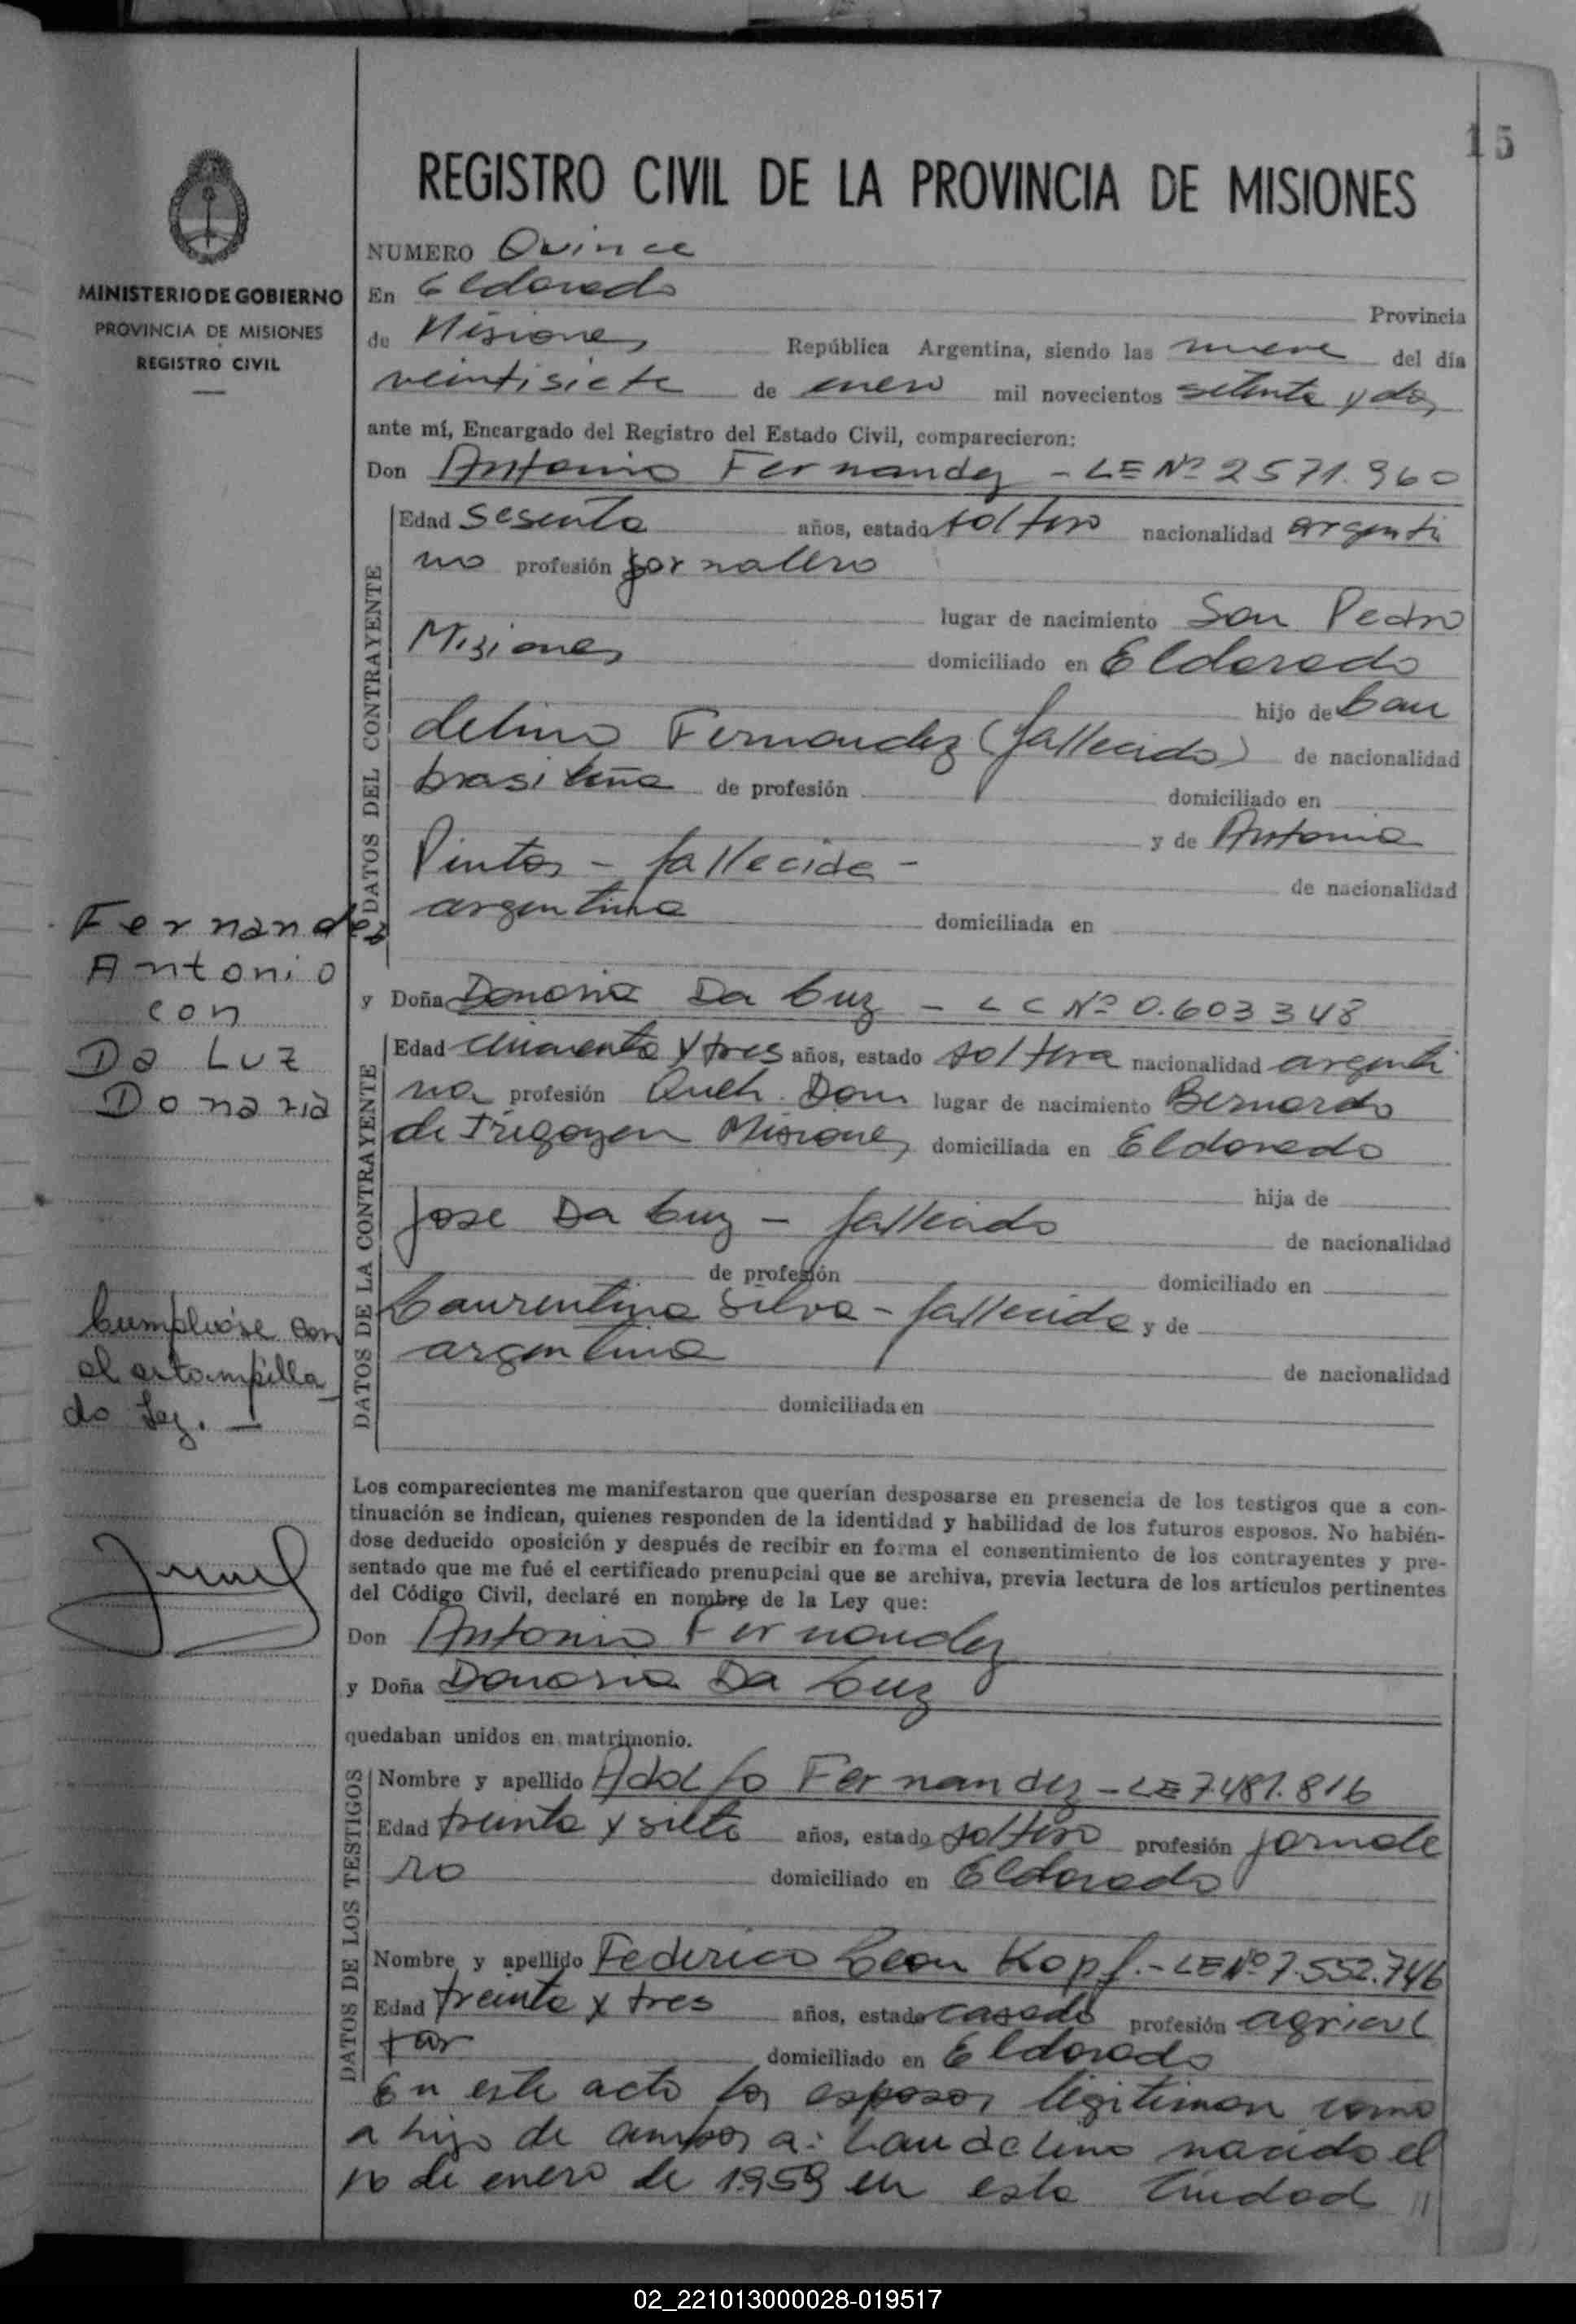 15
REGISTRO CIVIL DE LA PROVINCIA DE MISIONES
MINISTERIO DE GOBIERNO
PROVINCIA DE MISIONES
REGISTRO CIVIL
NUMERO Quince
En Eldorado Provincia
de Misiones República Argentina, siendo las nueve del día
veintisiete de enero mil novecientos setenta y dos
ante mí, Encargado del Registro del Estado Civil, comparecieron:
Don Antonio Fernandez - LE Nº 2571.960
DATOS DEL CONTRAYENTE
Edad Sesenta años, estado soltero nacionalidad argenti
no profesión jornalero
lugar de nacimiento San Pedro
Misiones domiciliado en Eldorado
hijo de Lau
delino Fernandez (fallecido) de nacionalidad
brasileña de profesión domiciliado en
y de Antonia
Pintos - fallecida - de nacionalidad
argentina domiciliada en
Fernandez
Antonio
con
Da Luz
Donaria
y Doña Donaria Da Luz - LC Nº 0.603348
DATOS DE LA CONTRAYENTE
Edad cincuenta y tres años, estado soltera nacionalidad argenti
na profesión Queh. Dom. lugar de nacimiento Bernardo
de Irigoyen Misiones domiciliada en Eldorado
hija de
Jose Da Luz - fallecido de nacionalidad
de profesión domiciliado en
Laurentina Silva - fallecida y de
argentina de nacionalidad
domiciliada en
Cumplióse con
el estampilla
do Ley. -
Los comparecientes me manifestaron que querían desposarse en presencia de los testigos que a con-
tinuación se indican, quienes responden de la identidad y habilidad de los futuros esposos. No habién-
dose deducido oposición y después de recibir en forma el consentimiento de los contrayentes y pre-
sentado que me fué el certificado prenupcial que se archiva, previa lectura de los artículos pertinentes
del Código Civil, declaré en nombre de la Ley que:
Don Antonio Fernandez
y Doña Donaria Da Luz
quedaban unidos en matrimonio.
DATOS DE LOS TESTIGOS
Nombre y apellido Adolfo Fernandez - LE 7.481.816
Edad treinta y siete años, estado soltero profesión jornale
ro domiciliado en Eldorado
Nombre y apellido Federico Leon Kopf. - LE Nº 7.552.746
Edad treinta y tres años, estado casado profesión agricul
tor domiciliado en Eldorado
En este acto los esposos legitiman como
a hijo de ambos a: Laudelino nacido el
10 de enero de 1959 en esta Ciudad //
02_221013000028-019517